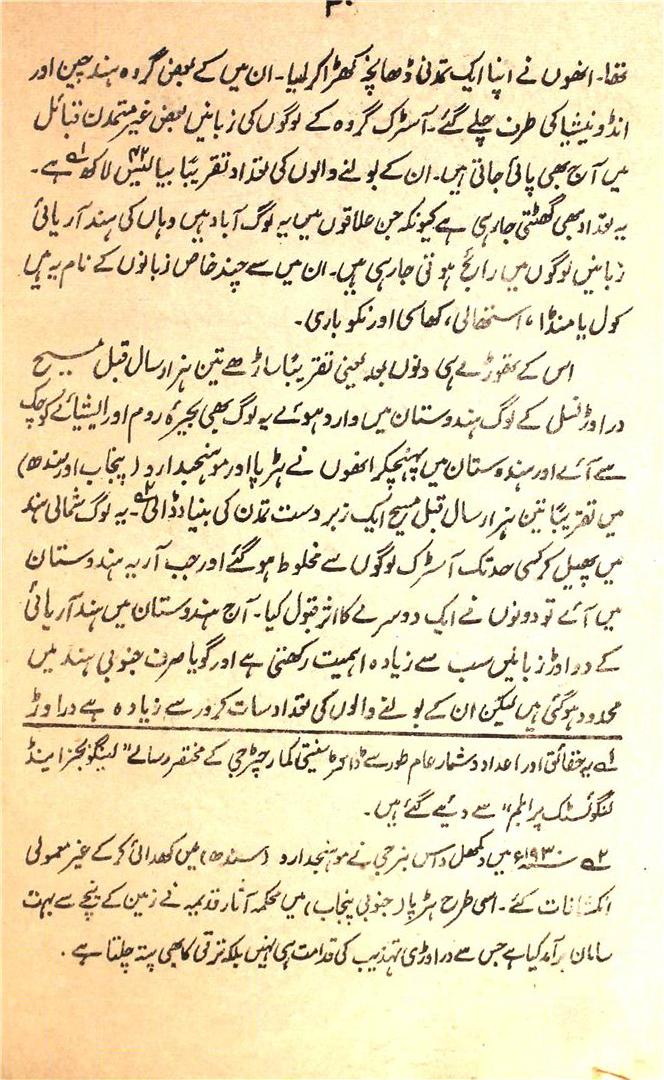 تھا۔ انھوں نے اپنا ایک تمدنی ڈھانچہ کھڑا کر لیا۔ ان میں کے بعض گروہ ہند چین اور
انڈونیشیا کی طرف چلے گئے۔ آسٹرک گروہ کے لوگوں کی زبانیں بعض غیر متمدن قبائل
میں آج بھی پائی جاتی ہیں۔ ان کے بولنے والوں کی تعداد تقریبًا بیالیس ۴۲ لاکھ ؎۱ ہے۔
یہ تعداد بھی گھٹتی جا رہی ہے کیونکہ جن علاقوں میں یہ لوگ آباد ہیں وہاں کی ہند آریائی
زبانیں لوگوں میں رائج ہوتی جا رہی ہیں۔ ان میں سے چند خاص زبانوں کے نام یہ ہیں
کول یا منڈا، استھالی، کھاسی اور نکوباری۔
اس کے تھوڑے ہی دنوں بعد یعنی تقریبًا ساڑھے تین ہزار سال قبل مسیح
دراوڑ نسل کے لوگ ہندوستان میں وارد ہوئے یہ لوگ بھی بحیرۂ روم اور ایشیائے کوچک
سے آئے اور ہندوستان میں پہنچکر انھوں نے ہڑپا اور موہنجدارو (پنجاب اور سندھ)
میں تقریبًا تین ہزار سال قبل مسیح ایک زبردست تمدن کی بنیاد ڈالی ؎۲۔ یہ لوگ شمالی ہند
میں پھیل کر کسی حد تک آسٹرک لوگوں سے مخلوط ہو گئے اور جب آریہ ہندوستان
میں آئے تو دونوں نے ایک دوسرے کا اثر قبول کیا۔ آج ہندوستان میں ہند آریائی
کے دراوڑ زبانیں سب سے زیادہ اہمیت رکھتی ہے اور گویا صرف جنوبی ہند میں
محدود ہو گئی ہیں لیکن ان کے بولنے والوں کی تعداد سات کرور سے زیادہ ہے دراوڑ
؎۱ یہ حقائق اور اعداد و شمار عام طور سے ڈاکٹر سنیتی کمار چٹرجی کے مختصر رسالے "لینگویجز اینڈ
لنگوئسٹک پرابلم" سے دیے گئے ہیں۔
؎۲ سنہ ۱۹۳۰ء میں داس بنرجی نے موہنجدارو (سندھ) میں کھدائی کر کے غیر معمولی
انکشافات کئے۔ اسی طرح ہڑپا (جنوبی پنجاب) میں محکمہ آثار قدیمہ نے زمین کے نیچے سے بہت
سامان برآمد کیا ہے جس سے دراوڑی تہذیب کی قدامت ہی نہیں بلکہ ترقی کا بھی پتہ چلتا ہے۔